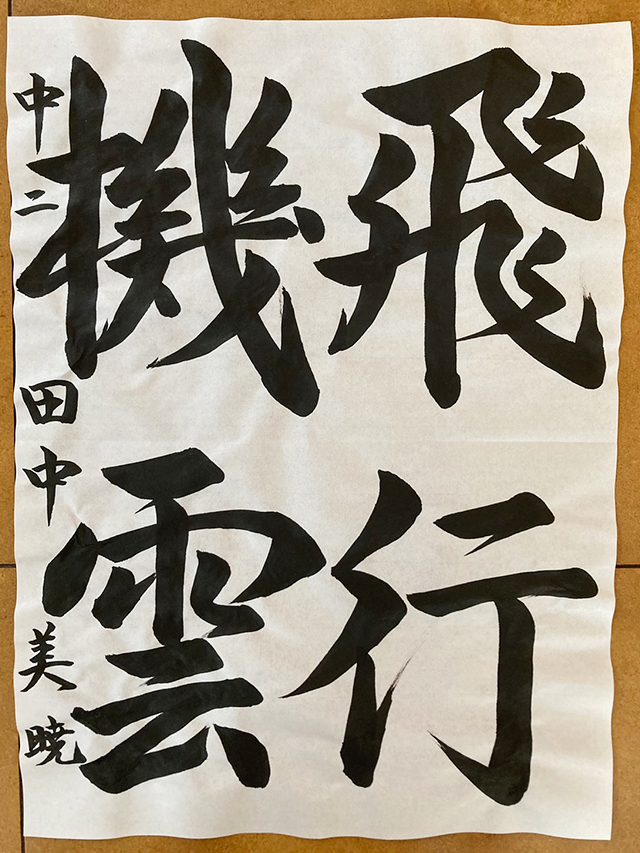 飛行
機雲
中二 田中美暁